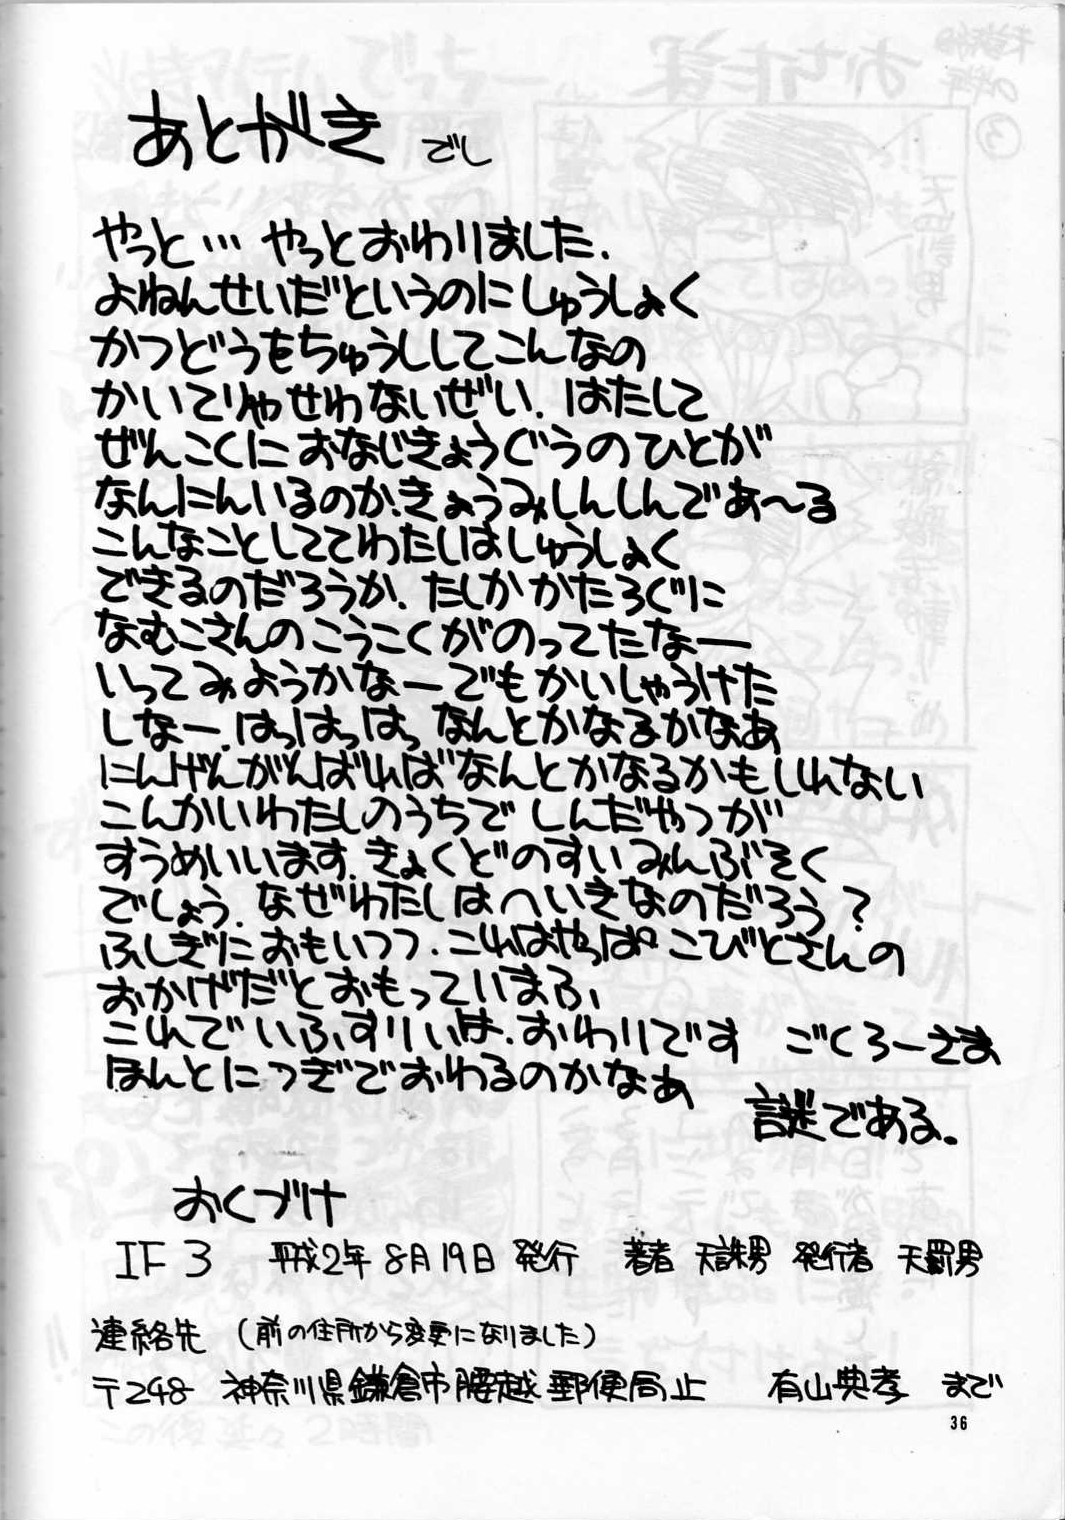 あとがき でし
やっと… やっとおわりました.
よねんせいだというのにしゅうしょく
かつどうをちゅうししてこんなの
かいてりゃせわないぜい. はたして
ぜんこくにおなじきょうぐうのひとが
なんにんいるのか.きょうみしんしんであ〜る
こんなことしててわたしはしゅうしょく
できるのだろうか. たしかかたろぐに
なむこさんのこうこくがのってたなー
いってみようかなーでもかいしゃうけた
しなー.はっはっはっ なんとかなるかなあ
にんげんがんばればなんとかなるかもしれない
こんかいわたしのうちでしんだやつが
すうめいいます.きょくどのすいみんぶそく
でしょう. なぜわたしはへいきなのだろう?
ふしぎにおもいつつ.これはやっぱこびとさんの
おかげだとおもっていまふ.
これでいふすりいは.おわりです ごくろーさま
ほんとにつぎでおわるのかなぁ
謎である。
おくづけ
IF3 平成2年8月19日 発行 著者 天誅男 発行者 天罰男
連絡先 (前の住所から変更になりました)
〒248 神奈川県鎌倉市腰越郵便局止 有山典孝 まで
36